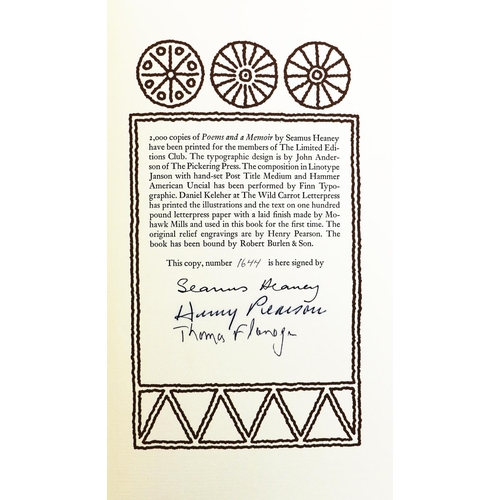 2,000 copies of Poems and a Memoir by Seamus Heaney
have been printed for the members of The Limited Edi-
tions Club. The typographic design is by John Ander-
son of The Pickering Press. The composition in Linotype
Janson with hand-set Post Title Medium and Hammer
American Uncial has been performed by Finn Typo-
graphic. Daniel Keleher at The Wild Carrot Letterpress
has printed the illustrations and the text on one hundred
pound letterpress paper with a laid finish made by Mo-
hawk Mills and used in this book for the first time. The
original relief engravings are by Henry Pearson. The
book has been bound by Robert Burlen & Son.
This copy, number 1644 is here signed by
Seamus Heaney
Henry Pearson
Thomas Flanagan